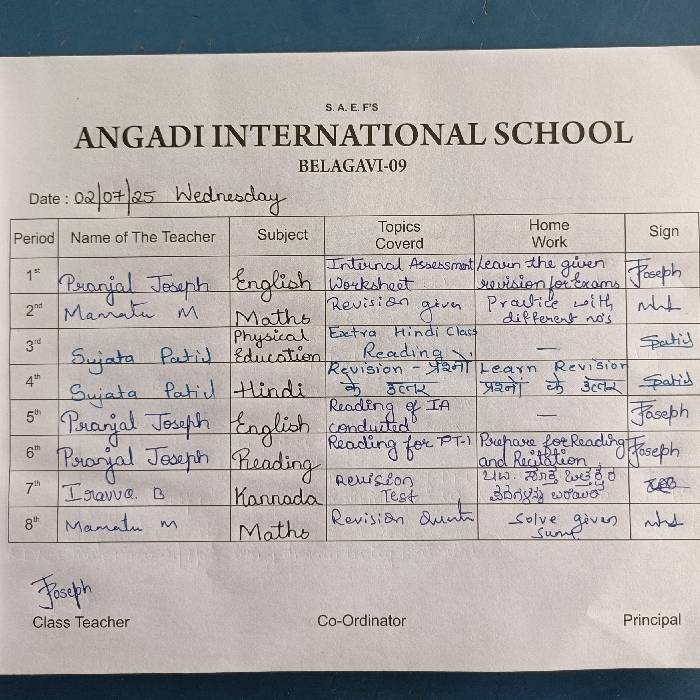 S. A. E. F'S
ANGADI INTERNATIONAL SCHOOL
BELAGAVI-09
Date : 02/07/25 Wednesday
Period Name of The Teacher Subject Topics Coverd Home Work Sign
1st Pranjal Joseph English Internal Assessment Worksheet Learn the given revision for Exams Joseph
2nd Mamata M Maths Revision given Practice with different no's
3rd Sujata Patil Physical Education Extra Hindi Class Reading — Spatil
4th Sujata Patil Hindi Revision - प्रश्नों के उत्तर Learn Revision प्रश्नों के उत्तर Spatil
5th Pranjal Joseph English Reading of IA conducted — Joseph
6th Pranjal Joseph Reading Reading for PT-1 Prepare for Reading and Recitation Joseph
7th Iravva. B Kannada Revision Test
8th Mamata M Maths Revision Solve given sums
Joseph
Class Teacher Co-Ordinator Principal